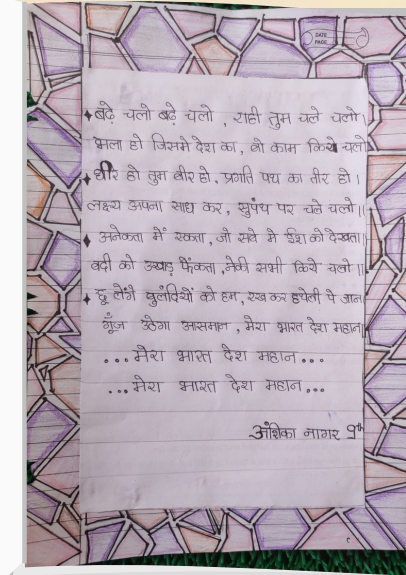 DATE
PAGE
बढ़े चलो बढ़े चलो, राही तुम चले चलो।
भला हो जिसमे देश का, वो काम किये चलो
धीर हो तुम वीर हो, प्रगति पथ का तीर हो।
लक्ष्य अपना साध कर, सुपंथ पर चले चलो॥
अनेकता में एकता, जो सबे मे ईश को देखता।
बदी को उखाड़ फेंकता, नेकी सभी किये चलो॥
छू लेंगे बुलंदियों को हम, रख कर हथेली पे जान
गूँज उठेगा आसमान, मेरा भारत देश महान॥
...मेरा भारत देश महान...
...मेरा भारत देश महान...
अंशिका नागर 9th